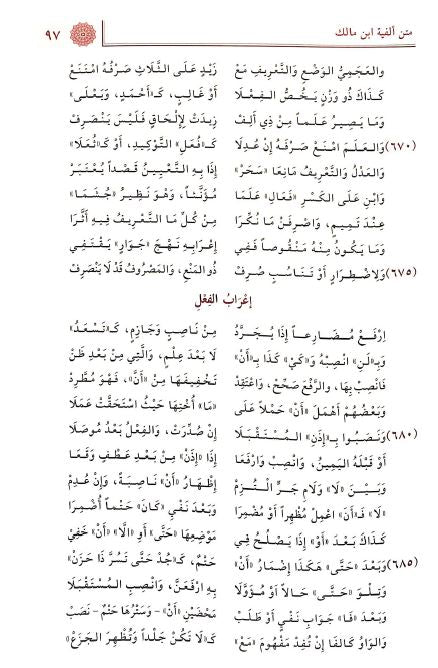 متن ألفية ابن مالك ٩٧
والعَجَمِيُّ الوَضْعِ وَالتَّعْرِيفِ مَعْ زَيْدٍ عَلَى الثَّلَاثِ صَرْفُهُ امْتَنَعْ
كَذَاكَ ذُو وَزْنٍ يَخُصُّ الفِعْلَا أَوْ غَالِبٍ، كَـ«أَحْمَدٍ، وَيَعْلَى»
وَمَا يَصِيرُ عَلَماً مِنْ ذِي أَلِفْ زِيدَتْ لِإِلْحَاقٍ فَلَيْسَ يَنْصَرِفْ
(٦٧٠) وَالعَلَمَ امْنَعْ صَرْفَهُ إِنْ عُدِلَا كَـ«فُعَلِ» التَّوْكِيدِ، أَوْ كَـ«ثُعَلَا»
وَالعَدْلُ وَالتَّعْرِيفُ مَانِعَا «سَحَرْ» إِذَا بِهِ التَّعْيِينُ قَصْداً يُعْتَبَرْ
وَابْنِ عَلَى الكَسْرِ «فَعَالِ» عَلَمَا مُؤَنَّثاً، وَهْوَ نَظِيرُ «جُشَمَا»
عِنْدَ تَمِيمٍ، وَاصْرِفَنْ مَا نُكِّرَا مِنْ كُلِّ مَا التَّعْرِيفُ فِيهِ أَثَّرَا
وَمَا يَكُونُ مِنْهُ مَنْقُوصاً فَفِي إِعْرَابِهِ نَهْجَ «جَوَارٍ» يَقْتَفِي
(٦٧٥) وَلِاضْطِرَارٍ أَوْ تَنَاسُبٍ صُرِفْ ذُو المَنْعِ، وَالمَصْرُوفُ قَدْ لَا يَنْصَرِفْ
إعْرَابُ الفِعْلِ
اِرْفَعْ مُضَارِعاً إِذَا يُجَرَّدُ مِنْ نَاصِبٍ وَجَازِمٍ، كَـ«تَسْعَدُ»
وَبِـ«لَنِ» انْصِبْهُ وَ«كَيْ» كَذَا بِـ«أَنْ» لَا بَعْدَ عِلْمٍ، وَالَّتِي مِنْ بَعْدِ ظَنّْ
فَانْصِبْ بِهَا، وَالرَّفْعَ صَحِّحْ، وَاعْتَقِدْ تَخْفِيفَهَا مِنْ «أَنَّ»، فَهْوَ مُطَّرِدْ
وَبَعْضُهُمْ أَهْمَلَ «أَنْ» حَمْلاً عَلَى «مَا» أُخْتِهَا حَيْثُ اسْتَحَقَّتْ عَمَلَا
(٦٨٠) وَنَصَبُوا بِـ«إِذَنِ» المُسْتَقْبَلَا إِنْ صُدِّرَتْ، وَالفِعْلُ بَعْدُ مُوصَلَا
أَوْ قَبْلَهُ اليَمِينُ، وَانْصِبْ وَارْفَعَا إِذَا «إِذَنْ» مِنْ بَعْدِ عَطْفٍ وَقَعَا
وَبَيْنَ «لَا» وَلَامِ جَرٍّ الْتُزِمْ إِظْهَارُ «أَنْ» نَاصِبَةً، وَإِنْ عُدِمْ
«لَا» فَـ«أَنَ» اعْمِلْ مُظْهِراً أَوْ مُضْمِرَا وَبَعْدَ نَفْيِ «كَانَ» حَتْماً أُضْمِرَا
كَذَاكَ بَعْدَ «أَوْ» إِذَا يَصْلُحُ فِي مَوْضِعِهَا «حَتَّى» أَوِ «الَّا» «أَنْ» خَفِيْ
(٦٨٥) وَبَعْدَ «حَتَّى» هَكَذَا إِضْمَارُ «أَنْ» حَتْمٌ، كَـ«جُدْ حَتَّى تَسُرَّ ذَا حَزَنْ»
وَتِلْوَ «حَتَّى» حَالاً أَوْ مُؤَوَّلَا بِهِ ارْفَعَنَّ، وَانْصِبِ المُسْتَقْبَلَا
وَبَعْدَ «فَا» جَوَابِ نَفْيٍ أَوْ طَلَبْ مَحْضَيْنِ «أَنْ» - وَسَتْرُهَا حَتْمٌ - نَصَبْ
وَالوَاوُ كَالفَا إِنْ تُفِدْ مَفْهُومَ «مَعْ» كَـ«لَا تَكُنْ جَلْداً وَتُظْهِرَ الجَزَعْ»